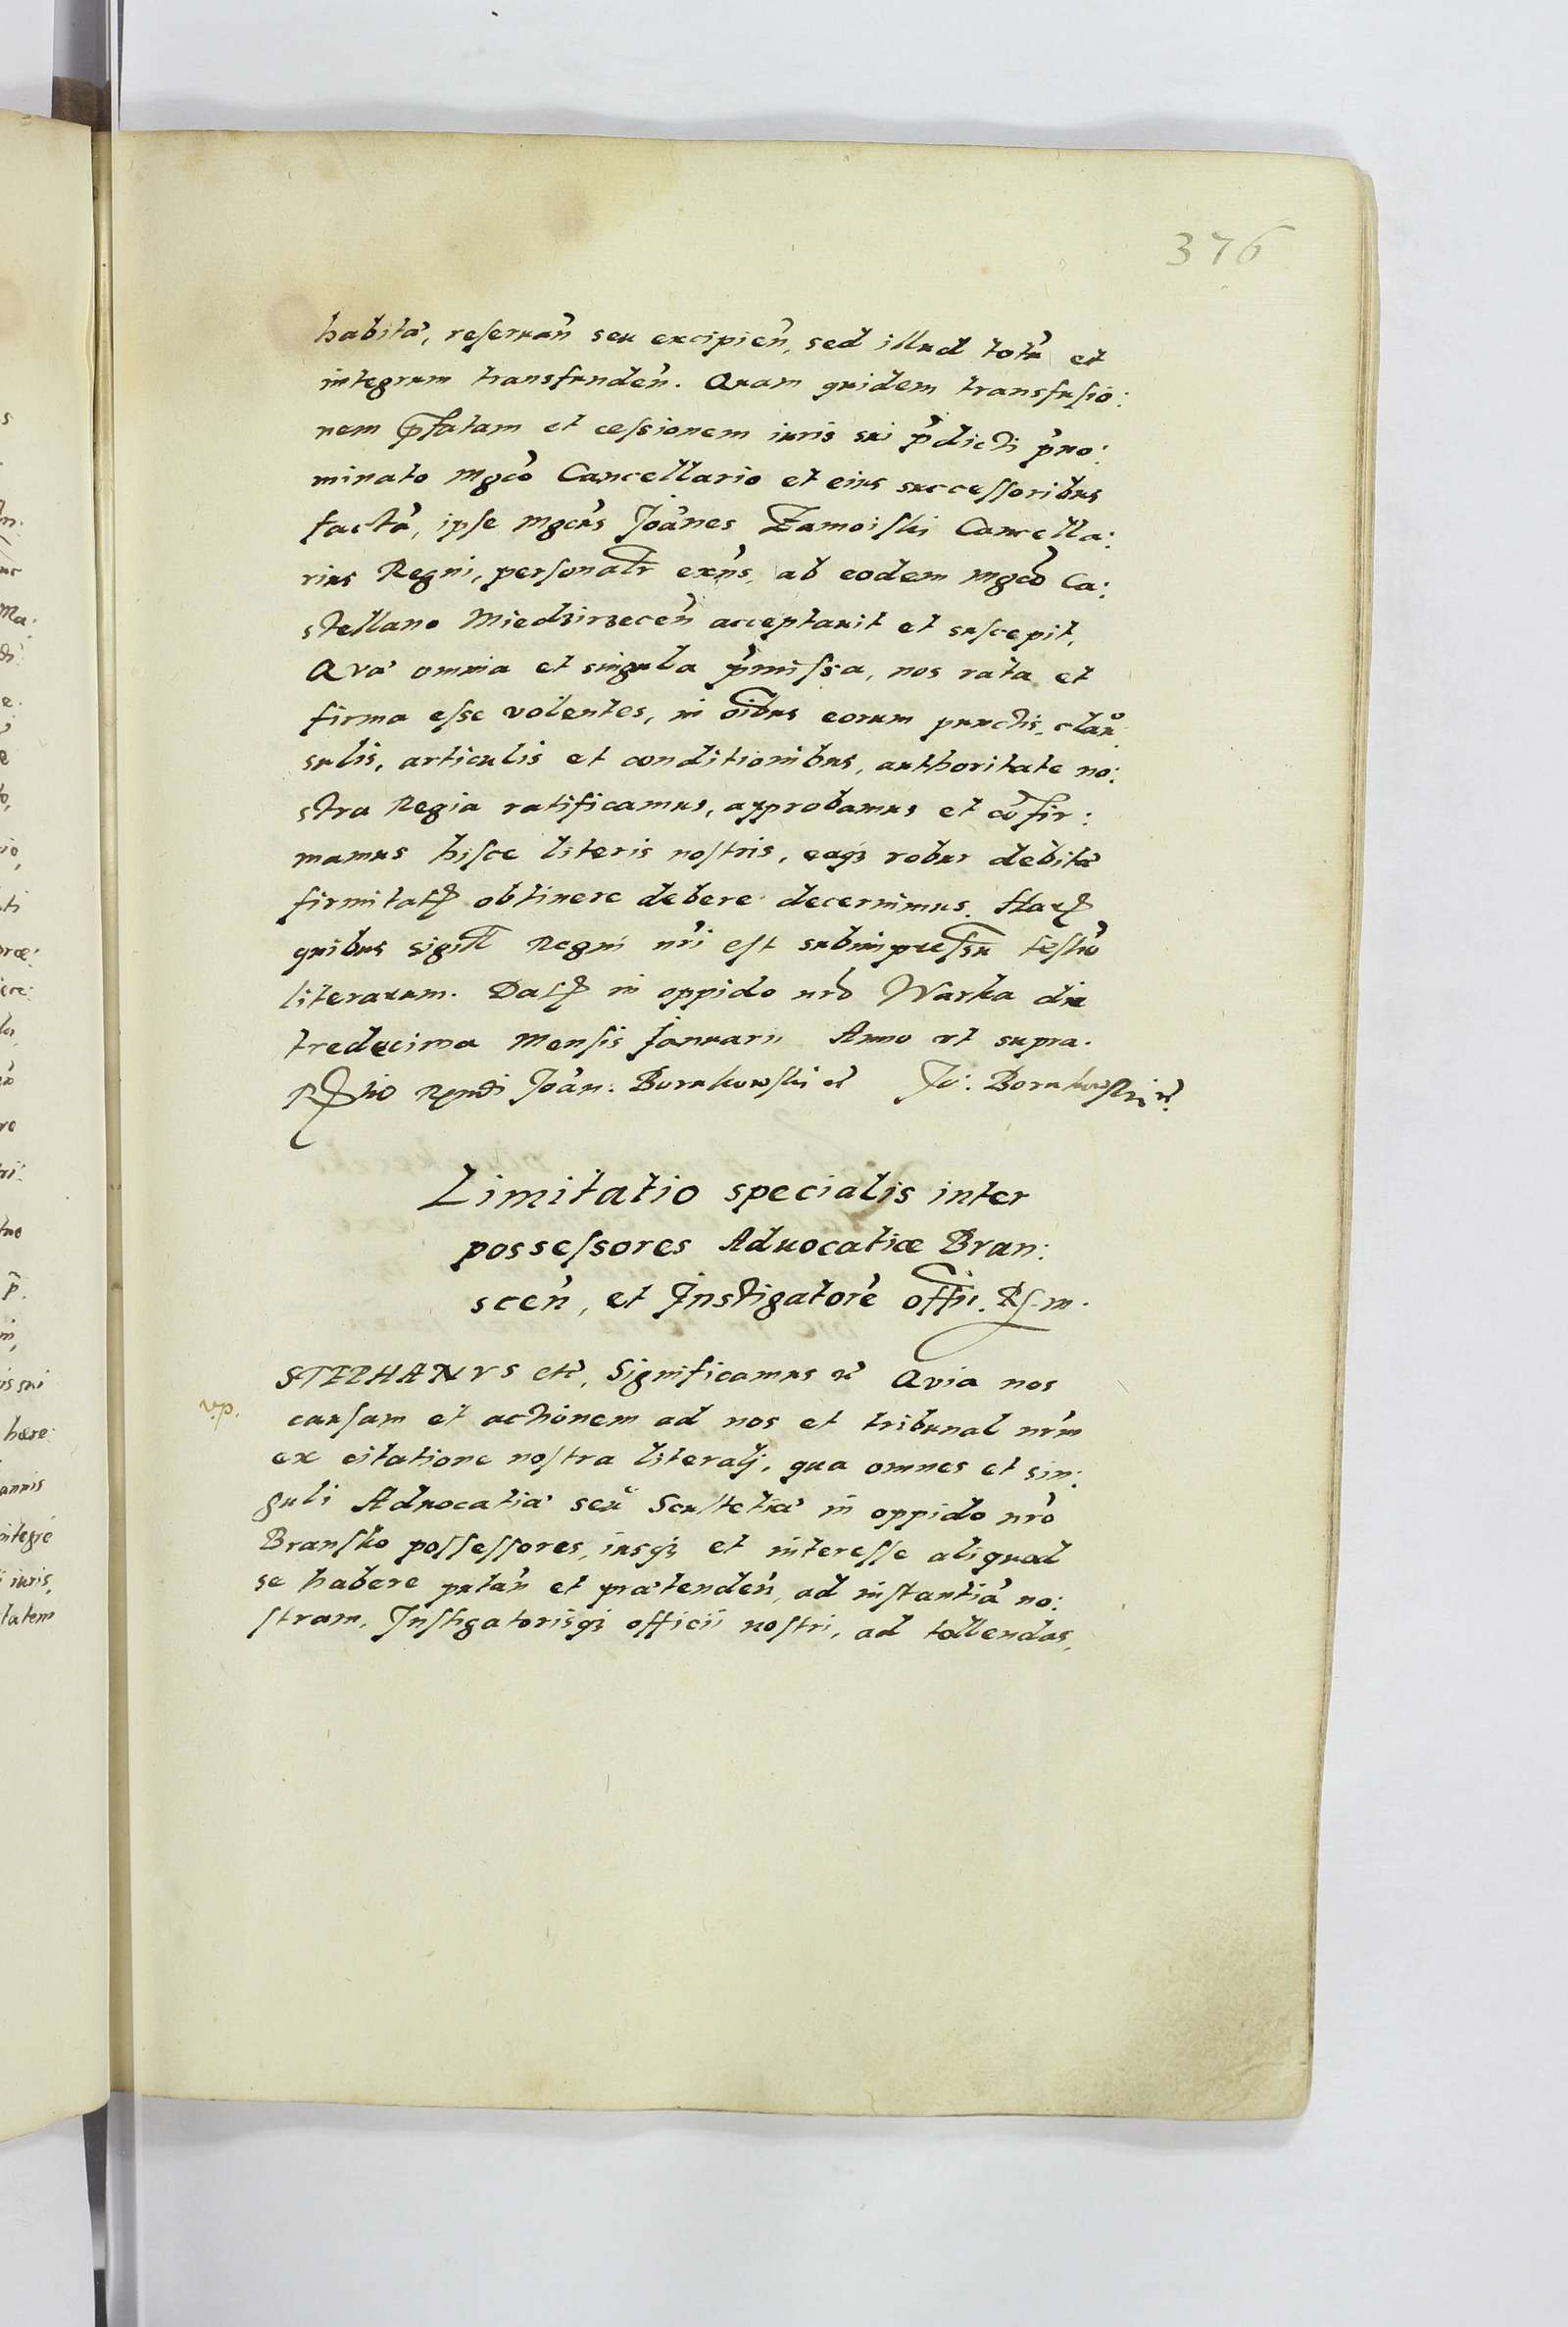 376
habitã, reseruañ seu excipieñ, sed illud totũ et
integrum transfundeñ. Quam quidem transfusio:
nem p̃fatam et cessionem iuris sui p̃dicti p̃no:
minato Mgc̃o Cancellario et eius successoribus
factã, ipse Mgcũs Joãnes Zamoiski Cancella:
rius Regni, personalr̃ exñs, ab eodem Mgc̃o Ca:
stellano Miedzirzeceñ acceptauit et suscepit,
Quæ omnia et singula p̃missa, nos rata et
firma esse volentes, in oĩbus eorum punctis, clau
sulis, articulis et conditionibus, authoritate no:
stra Regia ratificamus, approbamus et cõfir:
mamus hisce literis nostris, eaqꝫ robur debitæ
firmitatꝭ obtinere debere decernimus. Harꝭ
quibus sigill Regni nr̃i est subimpressũ testiõ
literarum. Datꝭ in oppido nrõ Warka die
tredecima Mensis Januarii Anno vt supra.
Rꝭtio Rendi Joãn: Borukowski etc̃ Jo: Borukowski etc̃
Limitatio specialis inter
possessores Aduocatiæ Bran:
sceñ, et Instigatorẽ offii. R. S. m.
STEPHANVS etc̃, Significamus etc̃ Quia nos
v.p.
causam et actionem ad nos et tribunal nr̃m
ex citatione nostra literalj, qua omnes et sin:
guli Aduocatiæ seu Scultetiæ in oppido nrõ
Bransko possessores, iusqꝫ et interesse aliquod
se habere putañ et prætendeñ, ad instantiã no:
stram, Instigatorisqꝫ officii nostri, ad tollendas,
s
Ma:
e.
e
io
ti
præ:
ere:
ro
ri:
p̃.
is sui
hære
annis
ntegre
iuris,
tatem